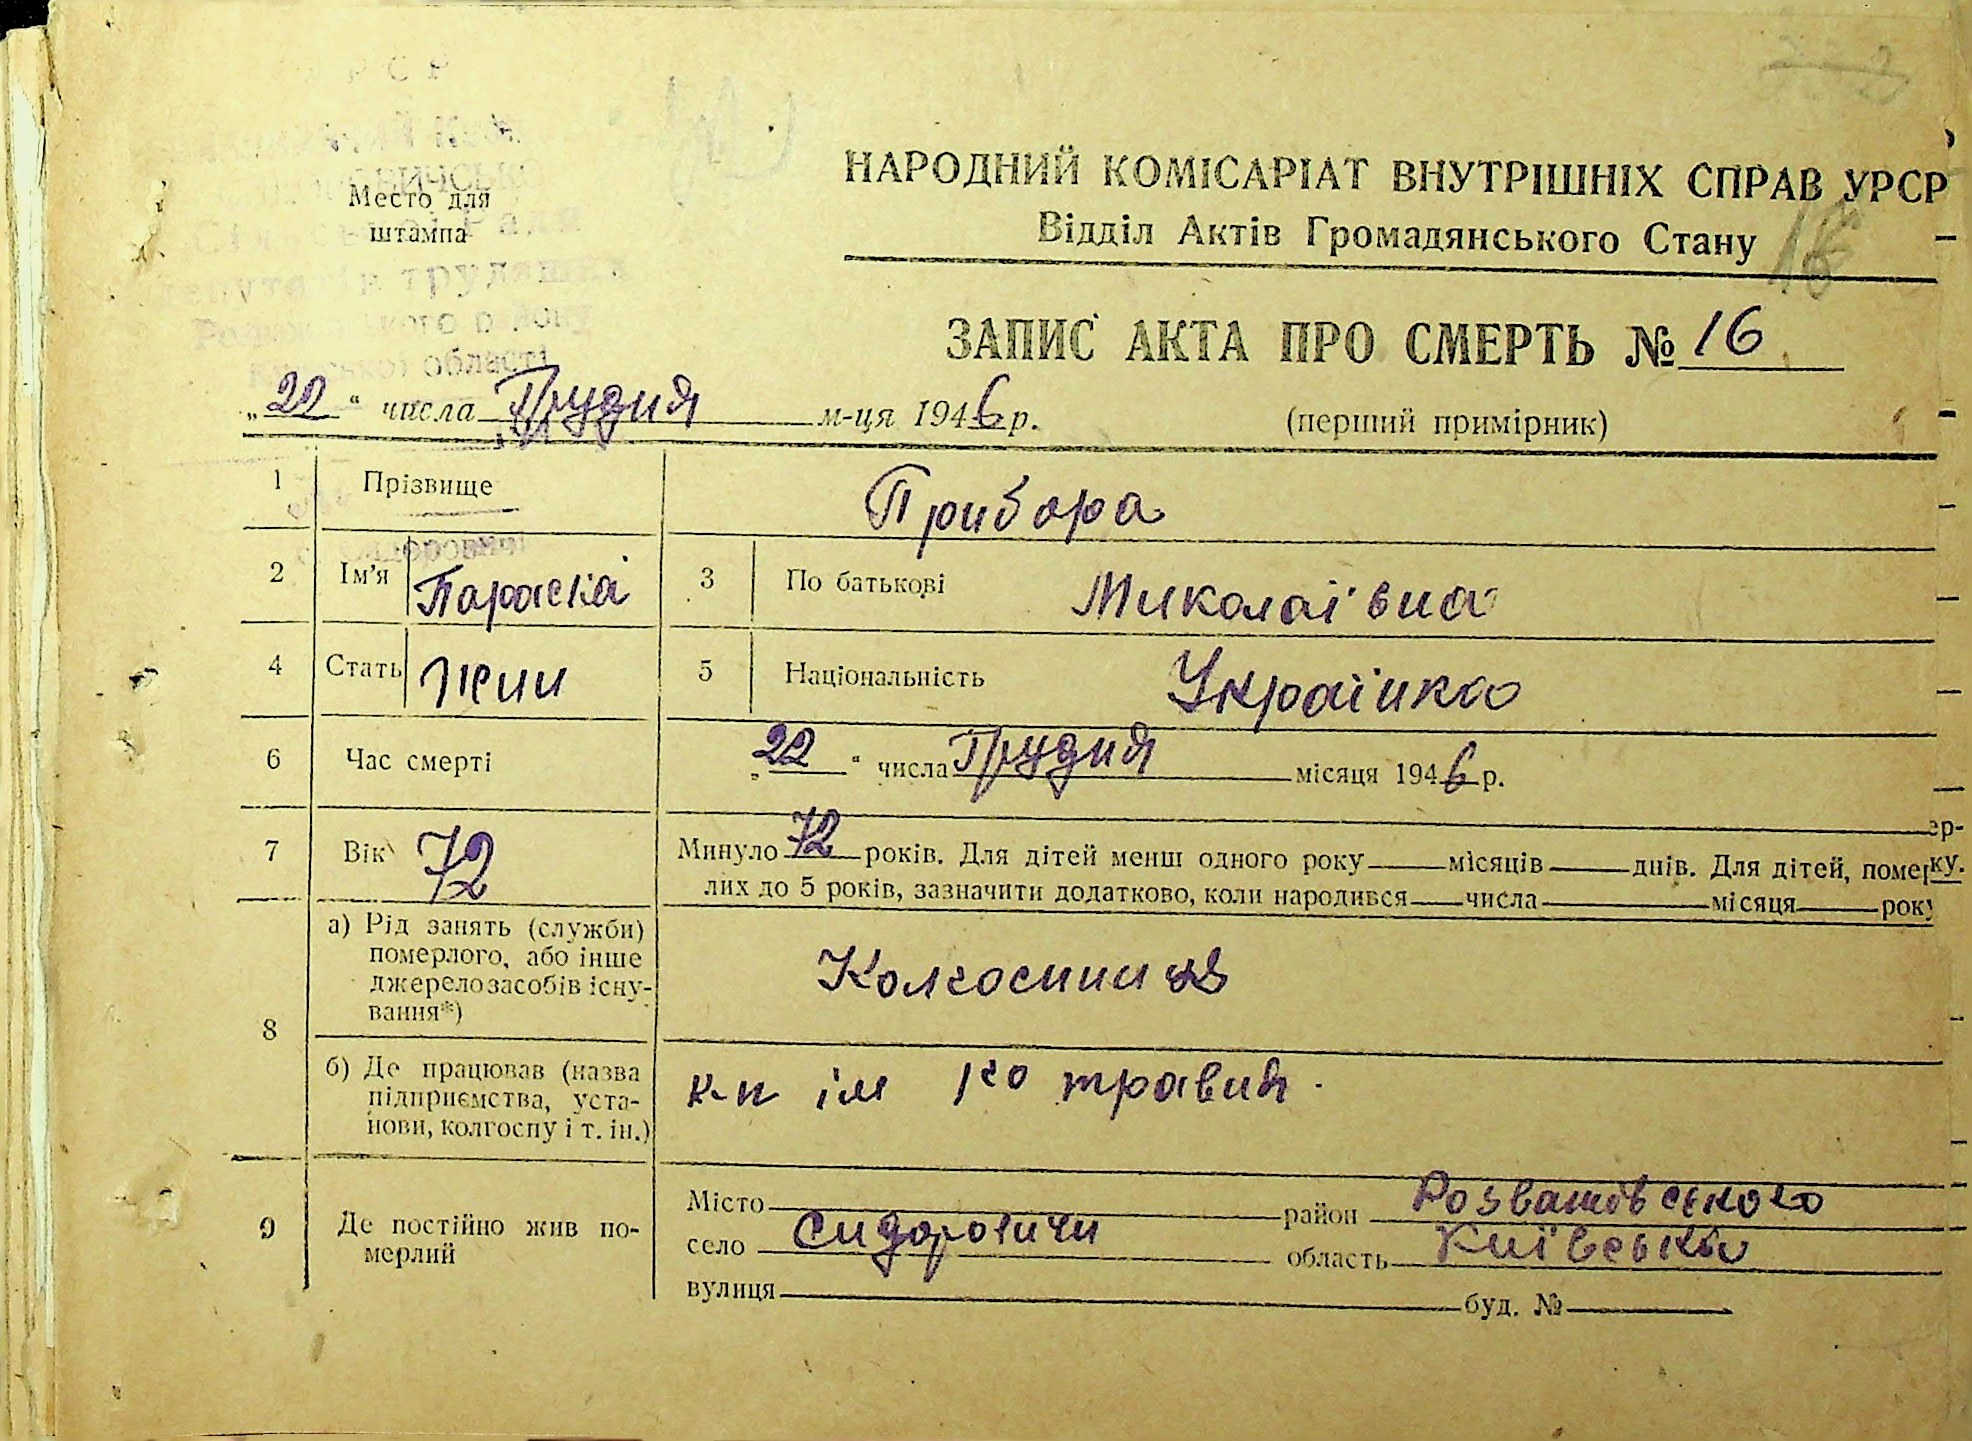 Место для
штампа
НАРОДНИЙ КОМІСАРІАТ ВНУТРІШНІХ СПРАВ УРСР
Відділ Актів Громадянського Стану
ЗАПИС АКТА ПРО СМЕРТЬ № 16
„22“ числа Грудня м-ця 1946 р.
(перший примірник)
1 Прізвище Прибора
2 Ім'я Параска 3 По батькові Миколаївна
4 Стать жин 5 Національність Українка
6 Час смерті „22“ числа Грудня місяця 1946 р.
7 Вік 72 Минуло 72 років. Для дітей менш одного року місяців днів. Для дітей, помер
лих до 5 років, зазначити додатково, коли народився числа місяця року
8 а) Рід занять (служби)
померлого, або інше
джерело засобів існу-
вання*)
Колгоспниця
б) Де працював (назва
підприємства, уста-
нови, колгоспу і т. ін.)
к-п ім 1го травня
9 Де постійно жив по-
мерлий
Місто район Розважівського
село Сидоровичи область Київська
вулиця буд. №